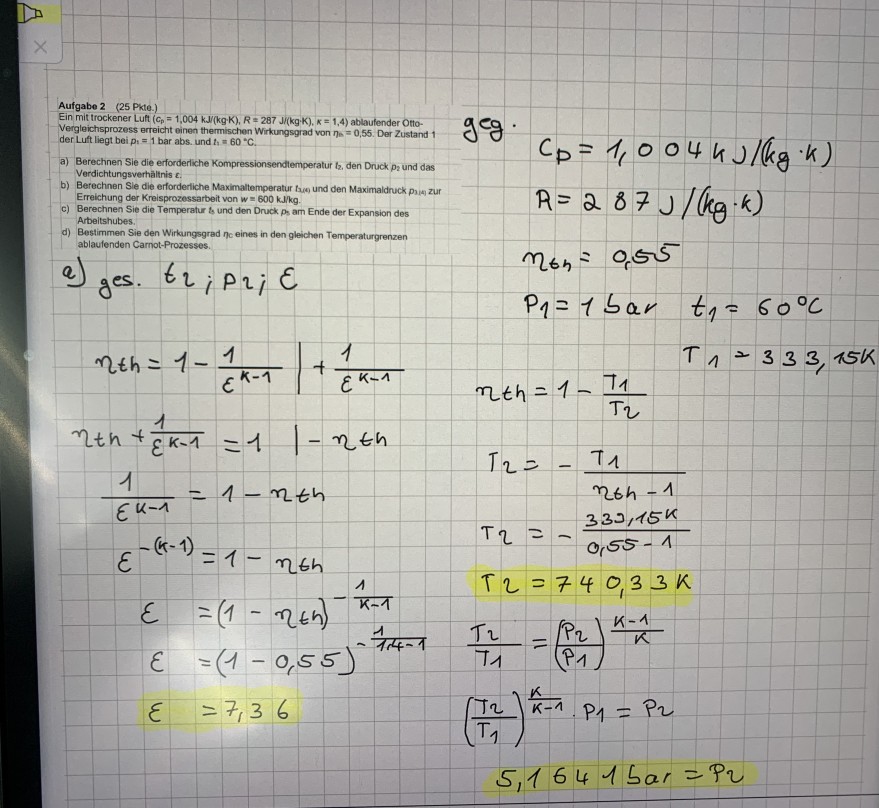 Aufgabe 2 (25 Pkte.)
Ein mit trockener Luft (cₚ = 1,004 kJ/(kg·K), R = 287 J/(kg·K), κ = 1,4) ablaufender Otto-
Vergleichsprozess erreicht einen thermischen Wirkungsgrad von ηₜₕ = 0,55. Der Zustand 1
der Luft liegt bei p₁ = 1 bar abs. und t₁ = 60 °C.
a) Berechnen Sie die erforderliche Kompressionsendtemperatur t₂, den Druck p₂ und das
Verdichtungsverhältnis ε.
b) Berechnen Sie die erforderliche Maximaltemperatur t₃,₍₄₎ und den Maximaldruck p₃,₍₄₎ zur
Erreichung der Kreisprozessarbeit von w = 600 kJ/kg.
c) Berechnen Sie die Temperatur t₅ und den Druck p₅ am Ende der Expansion des
Arbeitshubes.
d) Bestimmen Sie den Wirkungsgrad ηc eines in den gleichen Temperaturgrenzen
ablaufenden Carnot-Prozesses.
a) ges. t2 ; p2 ; ε
ηth = 1 - 1/ε^(K-1) | + 1/ε^(K-1)
ηth + 1/ε^(K-1) = 1 | - ηth
1/ε^(K-1) = 1 - ηth
ε^-(K-1) = 1 - ηth
ε = (1 - ηth)^(-1/(K-1))
ε = (1 - 0,55)^(-1/(1,4-1))
ε = 7,36
geg.
Cp = 1,004 kJ/(kg·K)
R = 287 J/(kg·K)
ηth = 0,55
P1 = 1 bar t1 = 60°C
T1 = 333,15K
ηth = 1 - T1/T2
T2 = - T1/(ηth - 1)
T2 = - 333,15K/(0,55 - 1)
T2 = 740,33K
T2/T1 = (P2/P1)^((K-1)/K)
(T2/T1)^(K/(K-1)) · P1 = P2
5,1641bar = P2